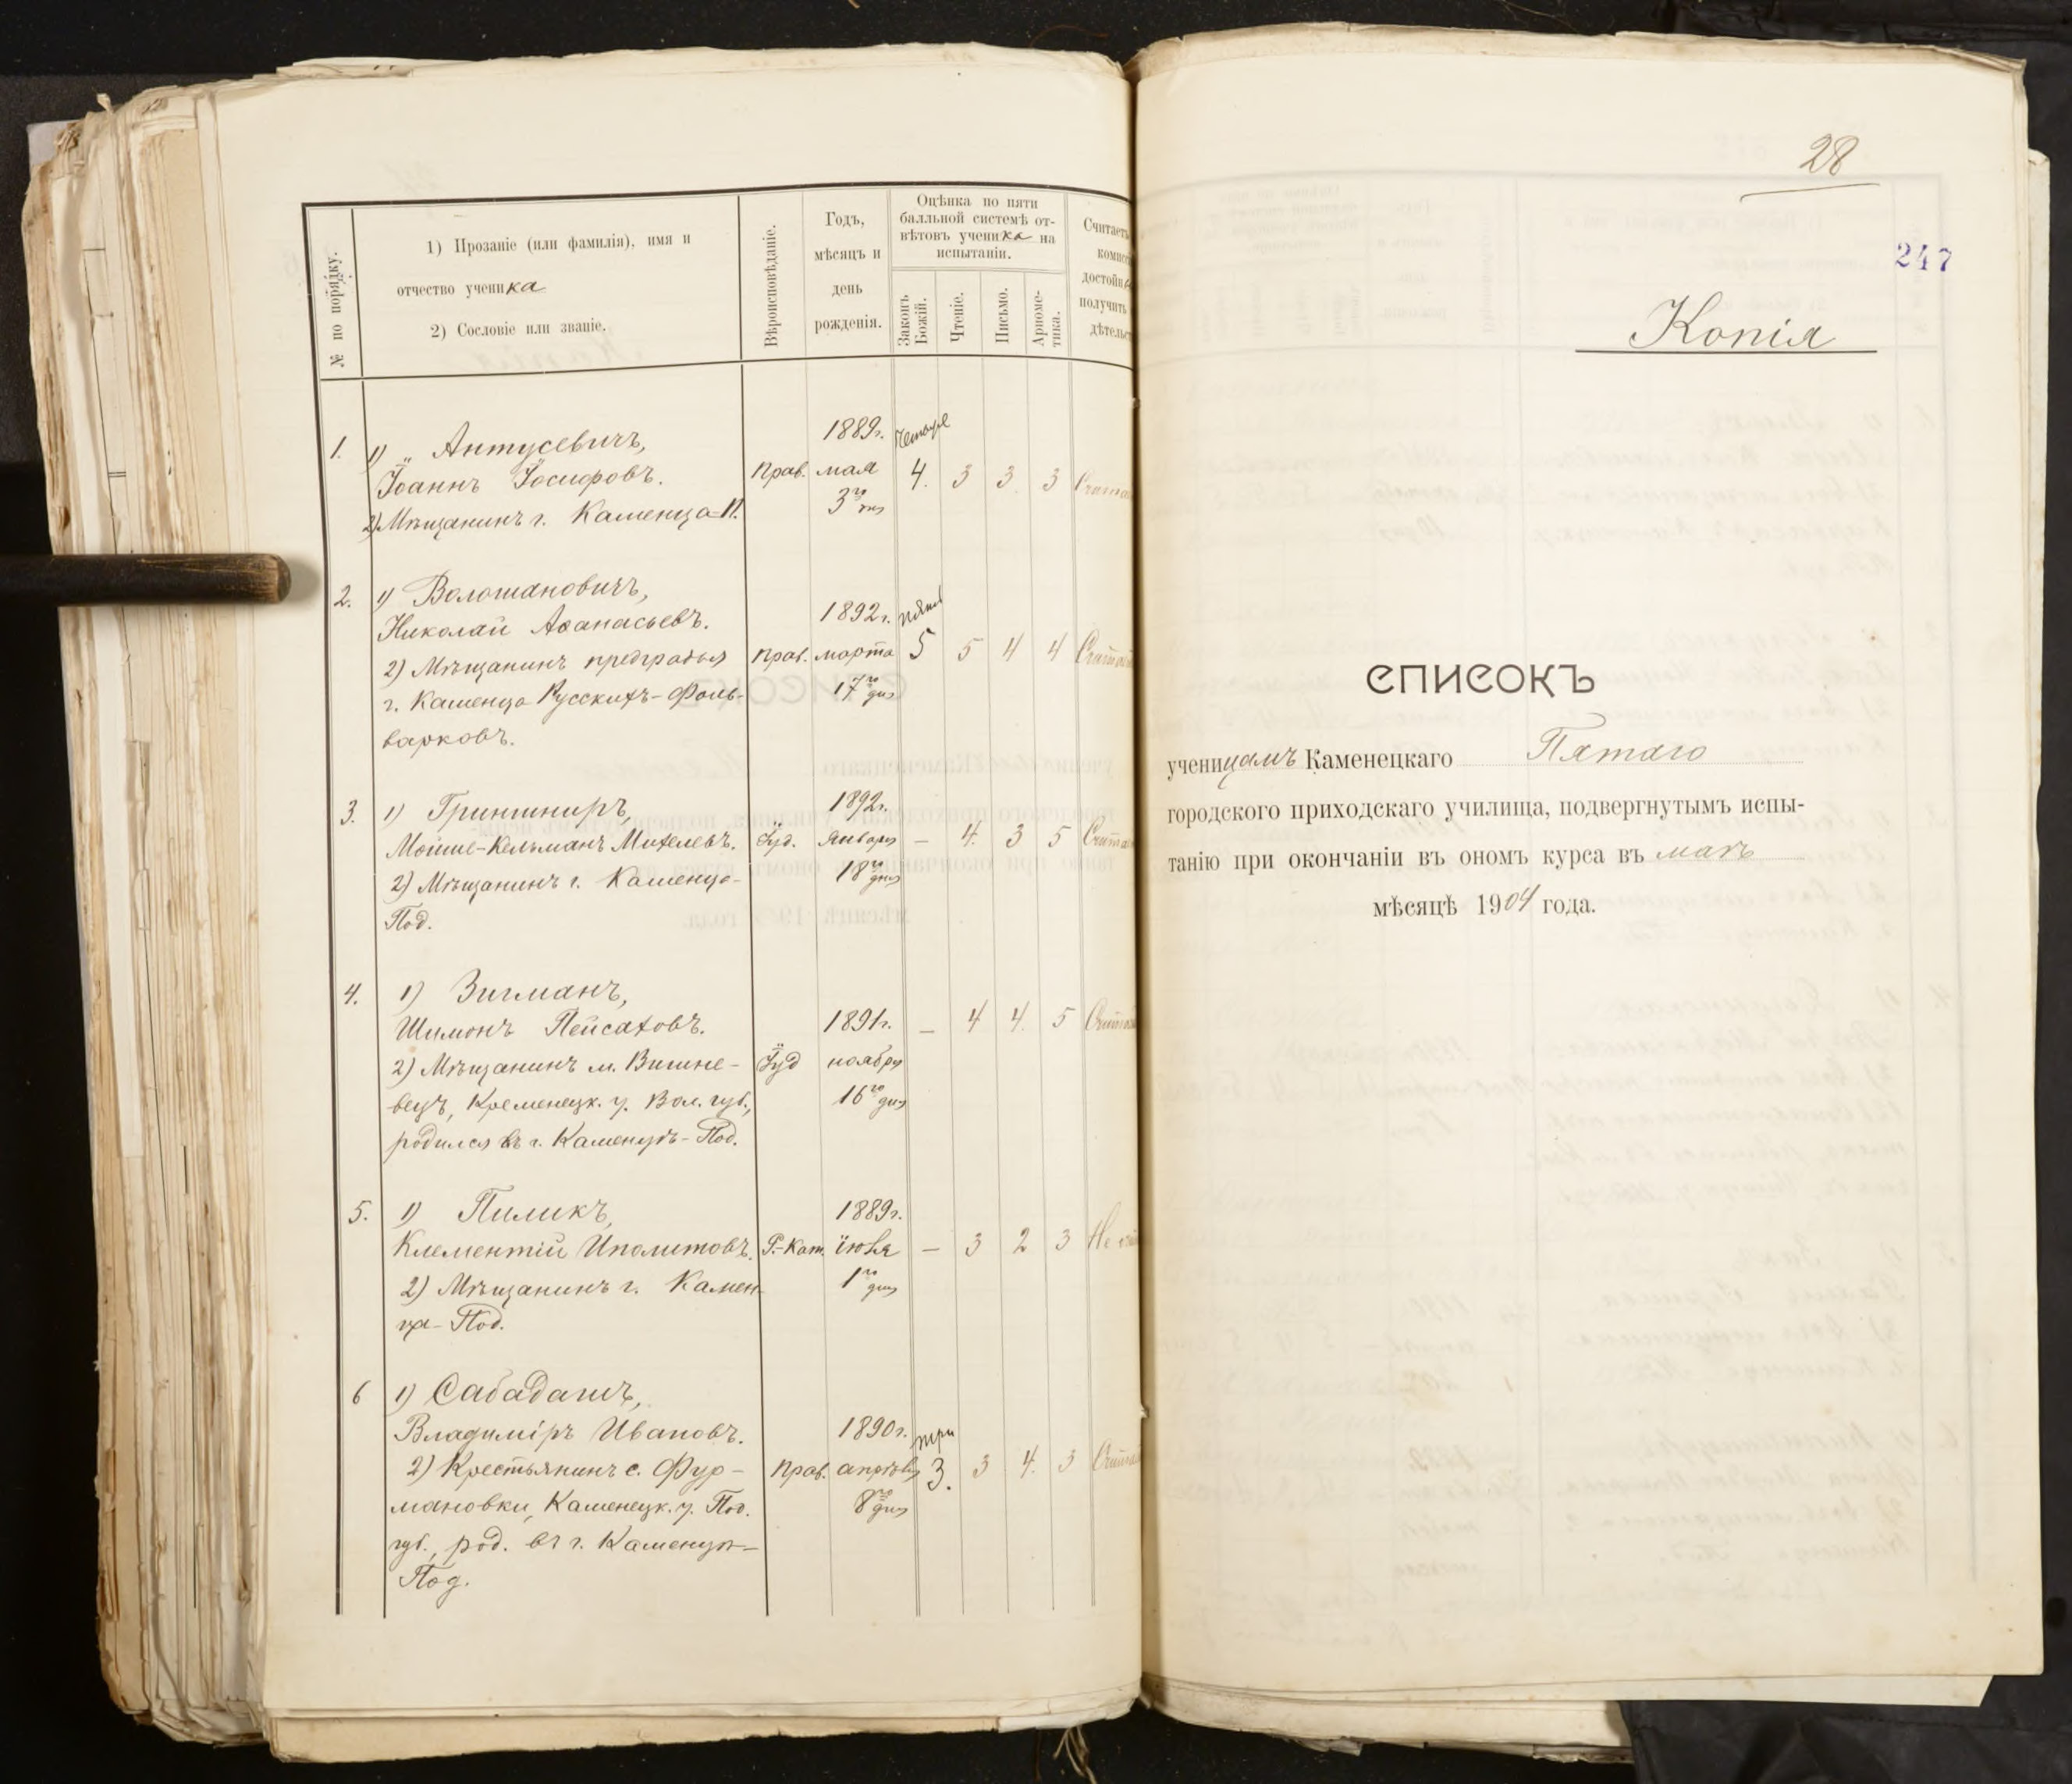 № по порядку.
1) Прозаніе (или фамилія), имя и
отчество ученика
2) Сословіе или званіе.
Вѣроисповѣданіе.
Годъ,
мѣсяцъ и
день
рожденія.
Оцѣнка по пяти
балльной системѣ от-
вѣтовъ ученика на
испытаніи.
Законъ
Божій.
Чтеніе.
Письмо.
Ариѳме-
тика.
Считаетъ
комис
достойн
получить
дѣтельс
1. 1) Антусевичъ,
Іоаннъ Іосифовъ.
2) Мѣщанинъ г. Каменца-П.
Прав.
1889г.
мая
3го дня
четыре
4. 3 3 3 Счита
2. 1) Волошановичъ,
Николай Аѳанасьевъ.
2) Мѣщанинъ предградья
г. Каменца Русскихъ-Фоль-
варковъ.
Прав.
1892г.
марта
17го дня
пять
5 5 4 4 Считает
3. 1) Гриншпиръ,
Мойше-Кельманъ Михелевъ.
2) Мѣщанинъ г. Каменца-
Под.
Іуд.
1892г.
января
18го дня
— 4. 3 5 Счита
4. 1) Зигманъ,
Шимонъ Пейсаховъ.
2) Мѣщанинъ м. Вишне-
вецъ, Кременецк. у. Вол. губ.,
родился въ г. Каменцѣ-Под.
Іуд
1891г.
ноября
16го дня
— 4 4. 5 Считает
5. 1) Пиликъ,
Клементій Иполитовъ.
2) Мѣщанинъ г. Камен-
ца-Под.
Р.-Кат.
1889г.
іюля
1го дня
— 3 2 3 Не счи
6 1) Сабадашъ,
Владиміръ Ивановъ.
2) Крестьянинъ с. Фур-
мановки, Каменецк. у. Под.
губ., род. въ г. Каменцѣ-
Под.
Прав.
1890г.
апрѣля
8го дня
три
3. 3 4. 3 Считает
28
247
Копія
СПИСОКЪ
ученицамъ Каменецкаго Пятаго
городского приходскаго училища, подвергнутымъ испы-
танію при окончаніи въ ономъ курса въ маѣ
мѣсяцѣ 1904 года.